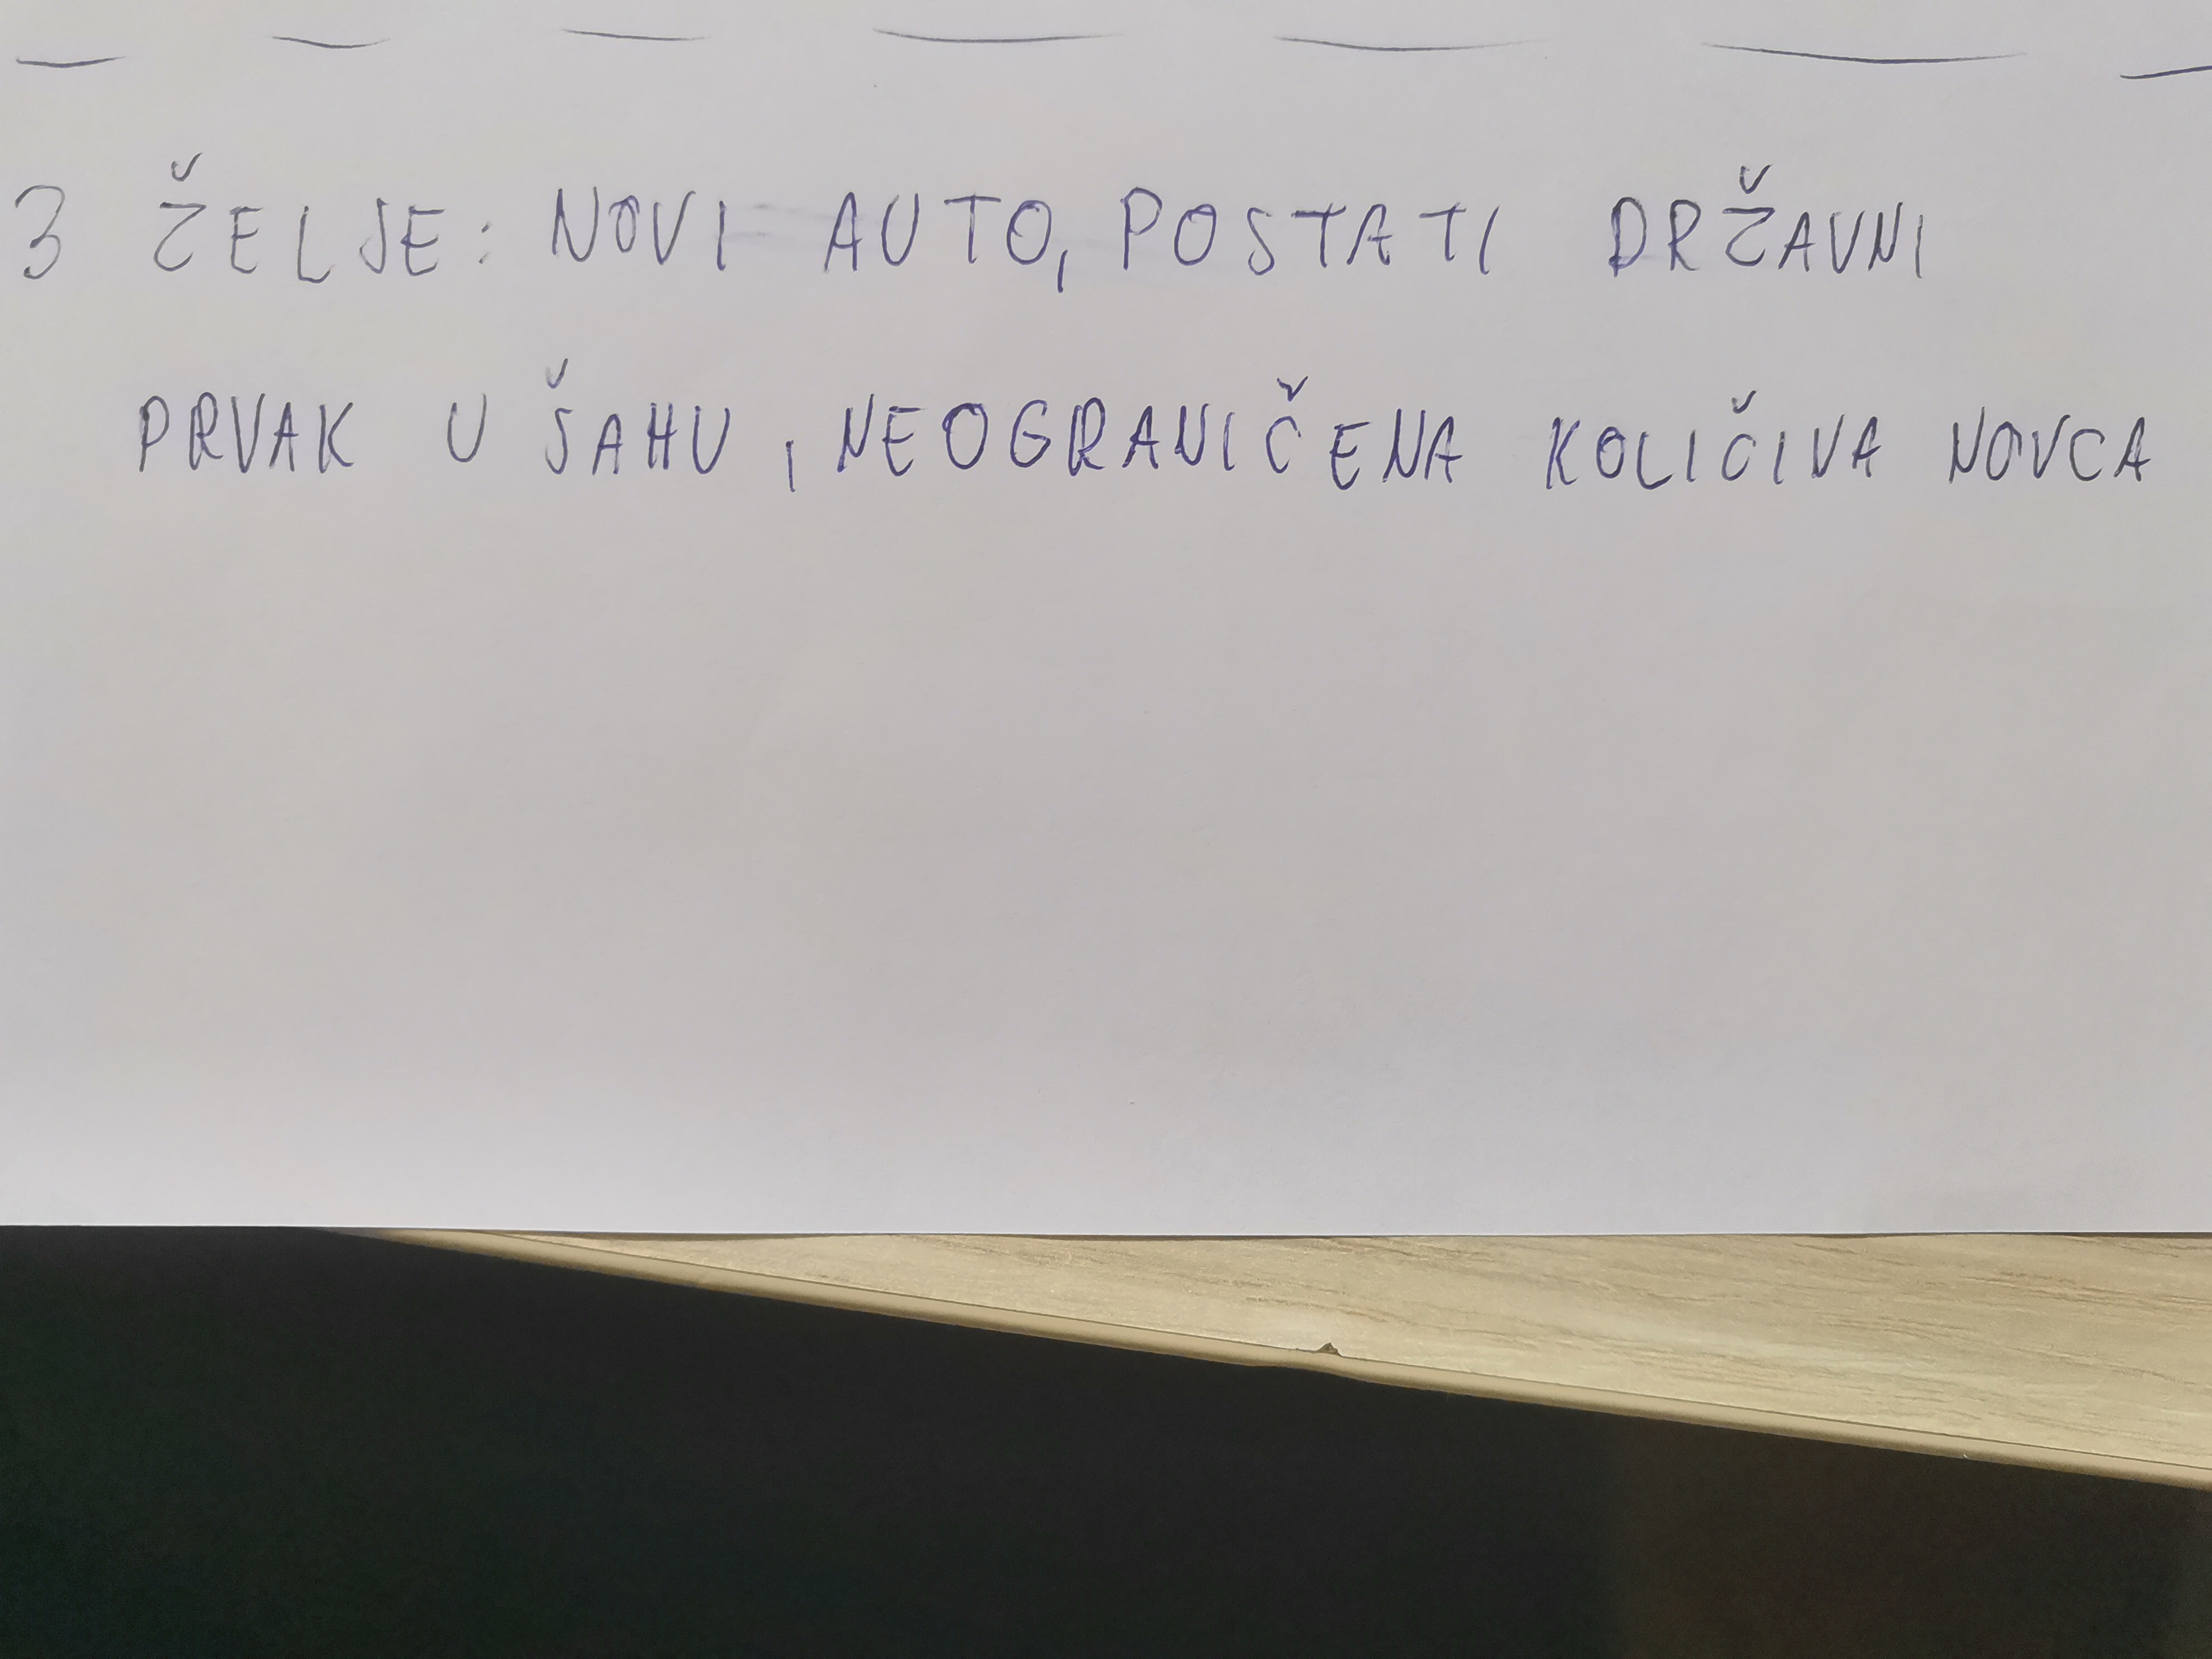 3 ŽELJE: NOVI AUTO, POSTATI DRŽAVNI
PRVAK U ŠAHU, NEOGRANIČENA KOLIČINA NOVCA